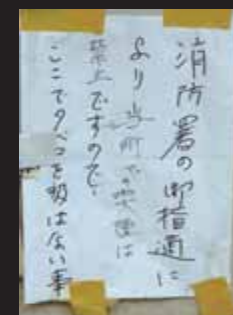 消防署の御指適に
より当所での喫煙は
禁止ですので、
ここでタバコを吸はない事